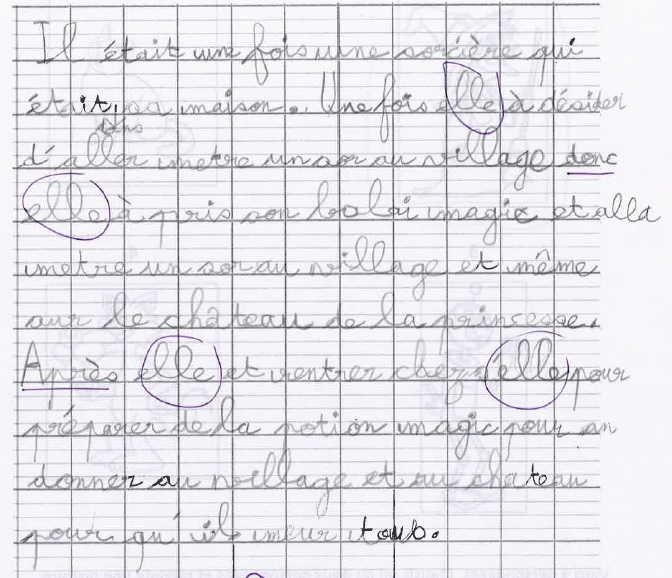 Il était une fois une sorcière qui
était dans sa maison. Une fois elle à désider
d'aller metre un sor au village donc
elle à pris son balai magic et alla
metre un sor au village et même
sur le château de la princesse.
Après elle et rentrer chez elle pour
préparer de la potion magic pour an
donner au village et au château
pour qu'il meur toub.